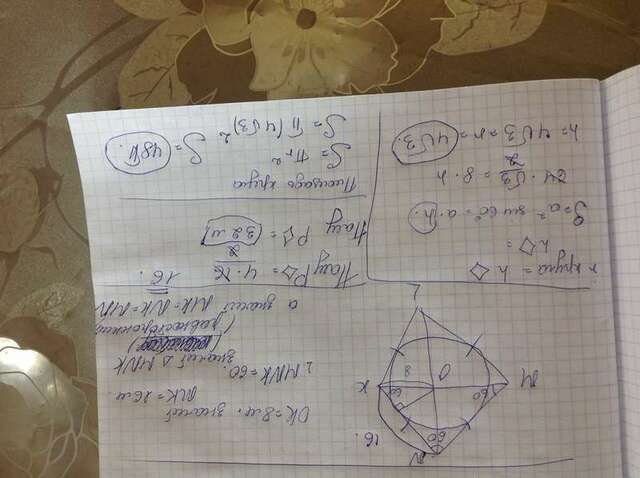 N
16.
60
M
60
60
O
8
K
L
OK = 8 м. значит
MK = 16 м.
∠ MNK = 60.
значит Δ MNK
(равносторонний)
а значит MK = NK = MN
16.
r круга = h ◇
h ◇ =
S = a² sin 60° = a · h.
64 · √3/2 = 8 · h
h = 4√3 = r = 4√3.
Полу P ◇ = 4 · 16 / 2
Полу P ◇ = 32 м
Площадь круга
S = πr²
S = π (4√3)²
S = 48π.